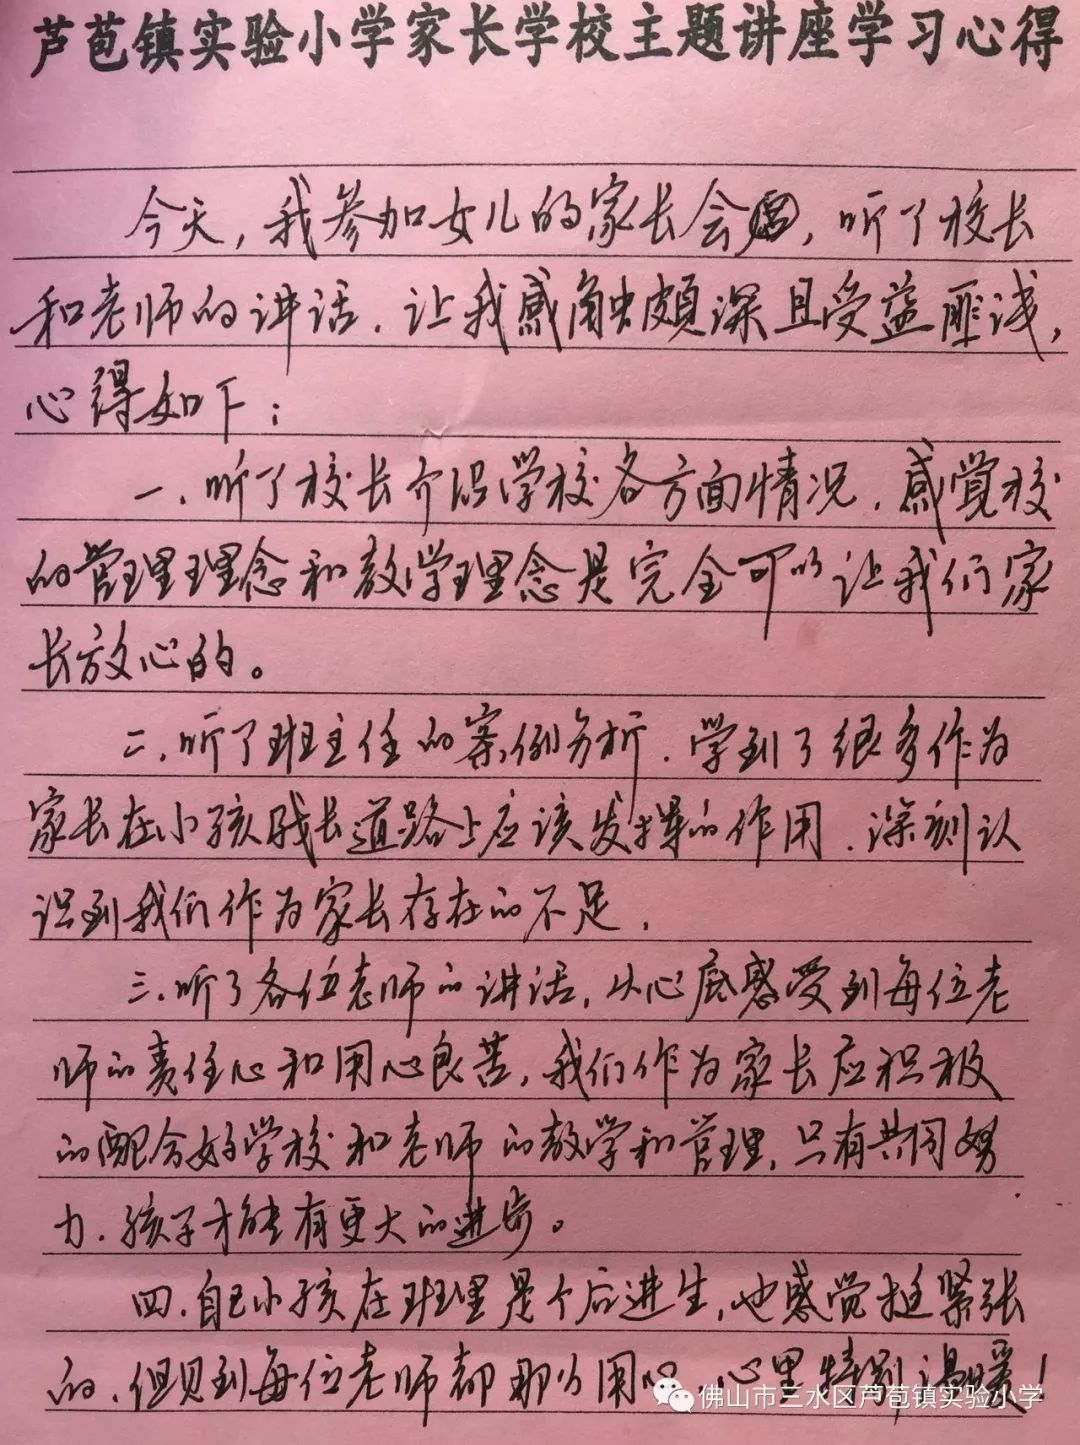 芦苞镇实验小学家长学校主题讲座学习心得
今天，我参加女儿的家长会，听了校长
和老师的讲话，让我感触颇深且受益匪浅，
心得如下：
一、听了校长介绍学校各方面情况，感觉校
的管理理念和教学理念是完全可以让我们家
长放心的。
二、听了班主任的案例分析，学到了很多作为
家长在小孩成长道路上应该发挥的作用，深刻认
识到我们作为家长存在的不足，
三、听了各位老师的讲话，从心底感受到每位老
师的责任心和用心良苦，我们作为家长应积极
的配合好学校和老师的教学和管理，只有共同努
力，孩子才能有更大的进步。
四、自己小孩在班里是个后进生，也感觉挺紧张
的，但见到每位老师都那么用心，心里特别温暖！
佛山市三水区芦苞镇实验小学